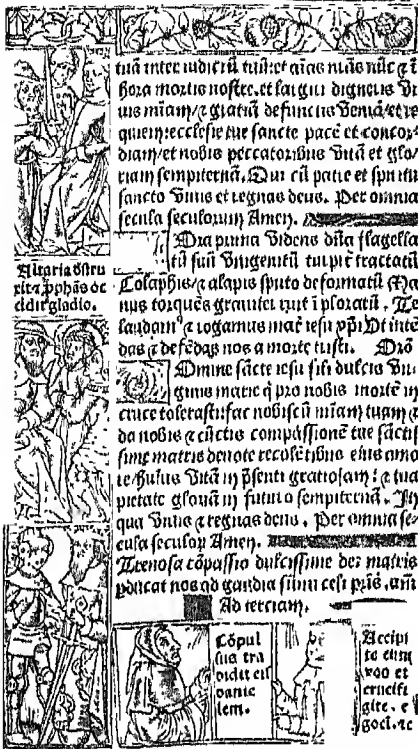 tuā inter iudiciū tuū: et aīas nr̄as nūc ⁊ ī
hora mortis nostre. et largiri digneris vi
uis mīam/ ⁊ gratiā defunctis veniā/ et re
quiem: ecclesie tue sancte pacē et concor
diam/ et nobis peccatoribus vitā et glo/
riam sempiternā. Qui cū patre et spiritu
sancto viuis et regnas deus. Per omnia
secula seculorum Amen.
Ora prima videns dn̄a flagella
tū suū vnigenitū turpit̄ tractatū
Colaphis ⁊ alapis sputo deformatū Ma
nus torquēs grauiter ruit ī ploratū. Te
laudam⁹ ⁊ rogamus mat̄ iesu xp̄i Ut intē
das ⁊ defēdas nos a morte tristi. Orō
Omine sācte iesu fili dulcis vir
ginis marie q̄ pro nobis mortē in
cruce tolerasti: fac nobiscū mīam tuam ⁊
da nobis ⁊ cūctis compassionē tue sāctis
sime matris deuote recolētibus eius amo
re/ huius vitā in p̄senti gratiosam: ⁊ tua
pietate gloriā in futuro sempiternā. In
qua viuis ⁊ regnas deus. Per omnia se
cula seculoꝝ Amen.
Trenosa cōpassio dulcissime dei matris
p̄ducat nos ad gaudia celi pr̄is. amē
Ad terciam.
Altaria dstru
xit ⁊ p̄phās oc
cidit gladio.
Cōpul
sus tra
didit eis
danie
lem.
Accipi
te eum
vos et
crucifi
gite. e
go ei. ⁊c